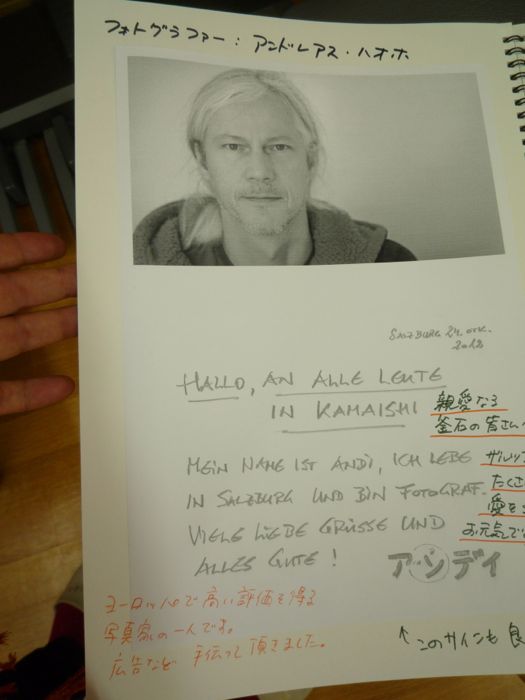 フォトグラファー：アンドレアス・ハオホ
SALZBURG 24. OKT.
2012
HALLO, AN ALLE LEUTE
IN KAMAISHI
親愛なる
釜石の皆さんへ
MEIN NAME IST ANDI, ICH LEBE
IN SALZBURG UND BIN FOTOGRAF.
VIELE LIEBE GRÜSSE UND
ALLES GUTE!
ザルツ
たくさ
愛を
お元気で
アンディ
ヨーロッパで高い評価を得る
写真家の一人です。
広告など手伝って頂きました。
↑このサインも良